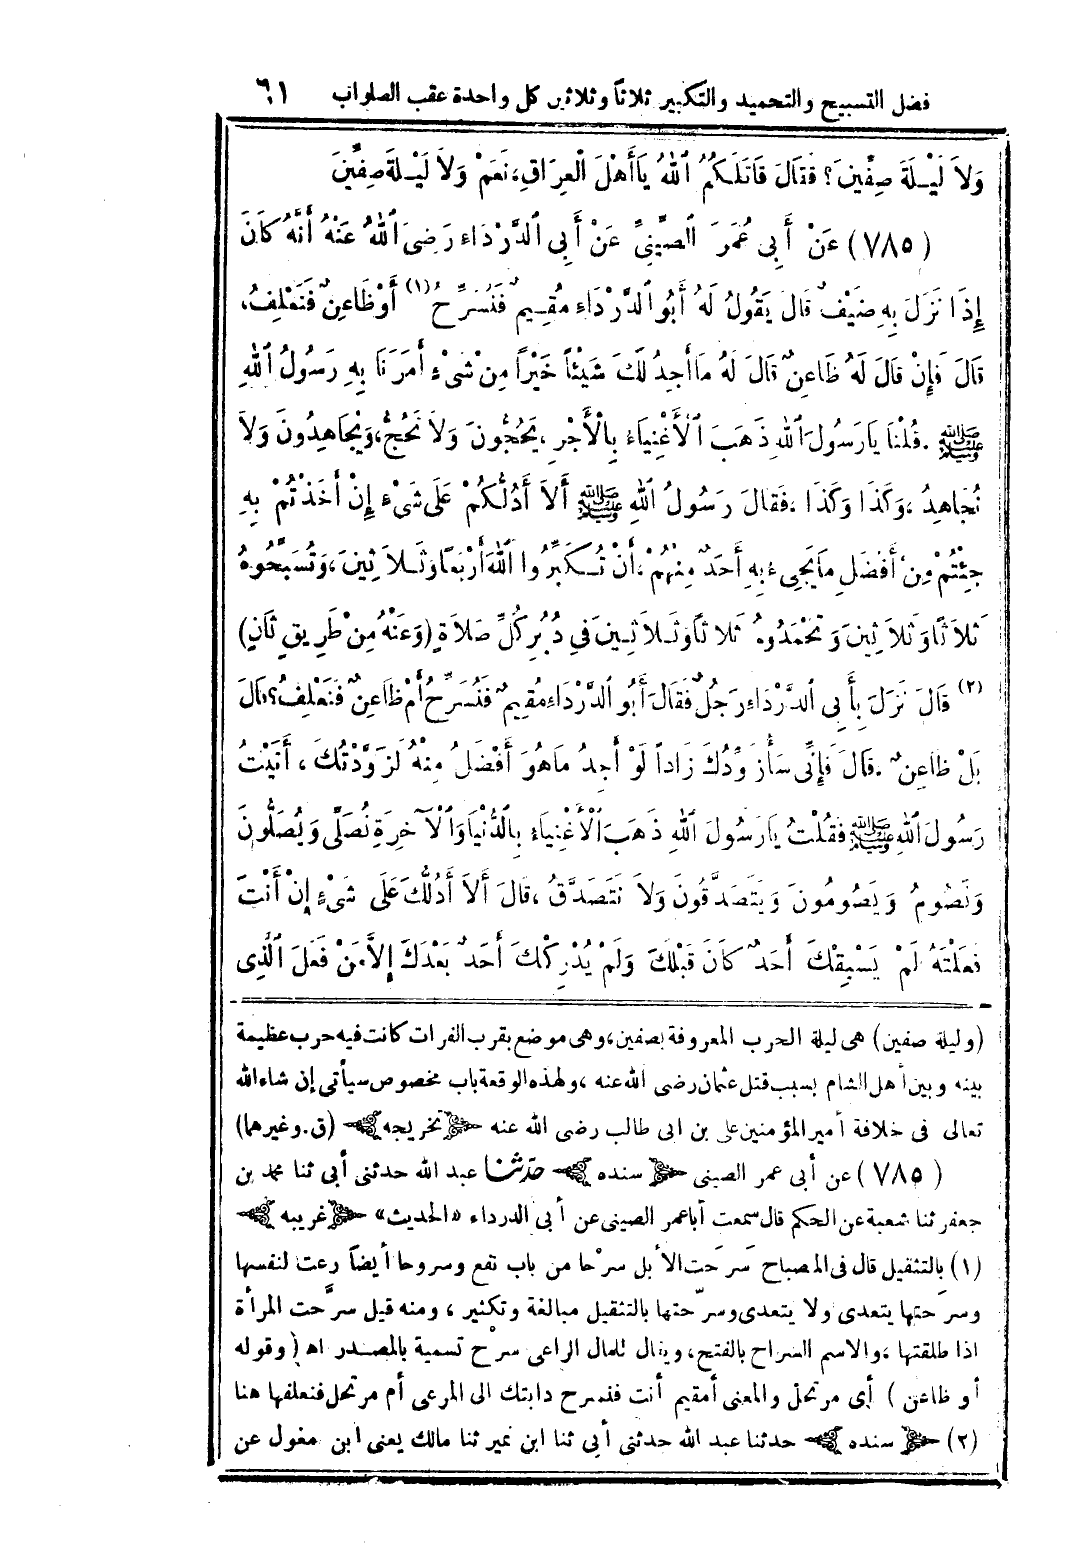 فضل التسبيح والتحميد والتكبير ثلاثا وثلاثين كل واحدة عقب الصلوات ٦١
وَلاَ لَيْلَةَ صِفِّينَ؟ فَقَالَ قَاتَلَكُمُ اللهُ يَاأَهْلَ الْعِرَاقِ، نَعَمْ وَلاَ لَيْلَةَ صِفِّينَ
(٧٨٥) عَنْ أَبِي عُمَرَ الصِّينِيِّ عَنْ أَبِي الدَّرْدَاءِ رَضِيَ اللهُ عَنْهُ أَنَّهُ كَانَ
إِذَا نَزَلَ بِهِ ضَيْفٌ قَالَ يَقُولُ لَهُ أَبُو الدَّرْدَاءِ مُقِيمٌ فَنُسَرِّحُ (١) أَوْ ظَاعِنٌ فَنَعْلِفُ،
قَالَ فَإِنْ قَالَ لَهُ ظَاعِنٌ قَالَ لَهُ مَاأَجِدُ لَكَ شَيْئًا خَيْرًا مِنْ شَيْءٍ أَمَرَنَا بِهِ رَسُولُ اللهِ
ﷺ. قُلْنَا يَارَسُولَ اللهِ ذَهَبَ الْأَغْنِيَاءُ بِالْأَجْرِ، يَحُجُّونَ وَلاَ نَحُجُّ، وَيُجَاهِدُونَ وَلاَ
نُجَاهِدُ، وَكَذَا وَكَذَا، فَقَالَ رَسُولُ اللهِ ﷺ أَلاَ أَدُلُّكُمْ عَلَى شَيْءٍ إِنْ أَخَذْتُمْ بِهِ
جِئْتُمْ مِنْ أَفْضَلِ مَايَجِيءُ بِهِ أَحَدٌ مِنْهُمْ، أَنْ تُكَبِّرُوا اللهَ أَرْبَعًا وَثَلاَثِينَ، وَتُسَبِّحُوهُ
ثَلاَثًا وَثَلاَثِينَ وَتَحْمَدُوهُ ثَلاَثًا وَثَلاَثِينَ فِي دُبُرِ كُلِّ صَلاَةٍ (وَعَنْهُ مِنْ طَرِيقٍ ثَانٍ)
(٢) قَالَ نَزَلَ بِأَبِي الدَّرْدَاءِ رَجُلٌ فَقَالَ أَبُو الدَّرْدَاءِ مُقِيمٌ فَنُسَرِّحُ أَمْ ظَاعِنٌ فَنَعْلِفُ؟ قَالَ
بَلْ ظَاعِنٌ. قَالَ فَإِنِّي سَأُزَوِّدُكَ زَادًا لَوْ أَجِدُ مَاهُوَ أَفْضَلُ مِنْهُ لَزَوَّدْتُكَ، أَتَيْتُ
رَسُولَ اللهِ ﷺ فَقُلْتُ يَارَسُولَ اللهِ ذَهَبَ الْأَغْنِيَاءُ بِالدُّنْيَا وَالْآخِرَةِ نُصَلِّي وَيُصَلُّونَ
وَنَصُومُ وَيَصُومُونَ وَيَتَصَدَّقُونَ وَلاَ نَتَصَدَّقُ، قَالَ أَلاَ أَدُلُّكَ عَلَى شَيْءٍ إِنْ أَنْتَ
فَعَلْتَهُ لَمْ يَسْبِقْكَ أَحَدٌ كَانَ قَبْلَكَ وَلَمْ يُدْرِكْكَ أَحَدٌ بَعْدَكَ إِلاَّ مَنْ فَعَلَ الَّذِي
(وليلة صفين) هى ليلة الحرب المعروفة بصفين، وهى موضع بقرب الفرات كانت فيه حرب عظيمة
بينه وبين أهل الشام بسبب قتل عثمان رضى الله عنه، ولهذه الوقعة باب مخصوص سيأتى إن شاء الله
تعالى فى خلافة أمير المؤمنين على بن ابى طالب رضى الله عنه ﴿تخريجه﴾ (ق. وغيرهما)
(٧٨٥) عن أبى عمر الصينى ﴿سنده﴾ حدّثنا عبد الله حدثنى أبى ثنا محمد بن
جعفر ثنا شعبة عن الحكم قال سمعت أباعمر الصينى عن أبى الدرداء «الحديث» ﴿غريبه﴾
(١) بالتثقيل قال فى المصباح سَرَحت الأبل سرْحا من باب نفع وسروحا أيضاً رعت لنفسها
وسرَحتها يتعدى ولا يتعدى وسرّحتها بالتثقيل مبالغة وتكثير، ومنه قيل سرَّحت المرأة
اذا طلقتها، والاسم السراح بالفتح، ويقال للمال الراعى سرْح تسمية بالمصدر اه (وقوله
أو ظاعن) أى مرتحل والمعنى أمقيم أنت فنسرح دابتك الى المرعى أم مرتحل فنعلفها هنا
(٢) ﴿سنده﴾ حدثنا عبد الله حدثنى أبى ثنا ابن نمير ثنا مالك يعنى ابن مغول عن